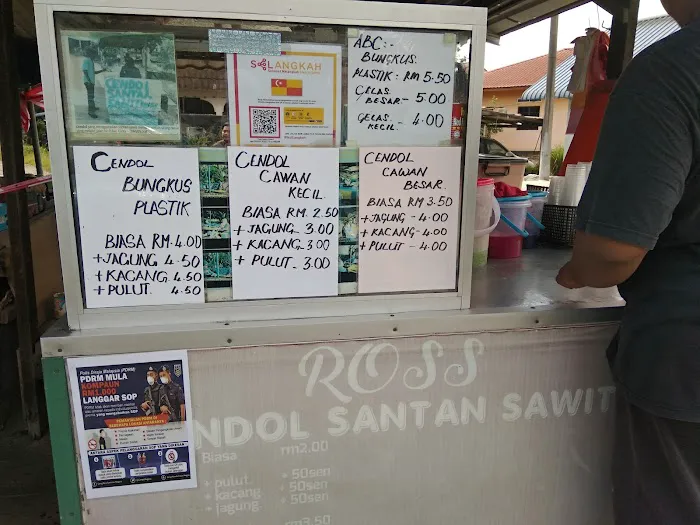 CENDOL
SANTAN
SAWIT
SELANGKAH
ABC:-
BUNGKUS
PLASTIK: RM 5.50
GELAS
BESAR:- 5.00
GELAS
KECIL:- 4.00
CENDOL
BUNGKUS
PLASTIK
BIASA RM. 4.00
+JAGUNG 4.50
+KACANG. 4.50
+PULUT. 4.50
CENDOL
CAWAN
KECIL.
BIASA RM. 2.50
+JAGUNG- 3.00
+KACANG- 3.00
+PULUT- 3.00
CENDOL
CAWAN
BESAR.
BIASA RM 3.50
+JAGUNG - 4.00
+KACANG - 4.00
+PULUT - 4.00
ROSS
NDOL SANTAN SAWIT
Biasa rm2.00
• pulut • 50sen
• kacang • 50sen
• jagung • 50sen
rm3.50
Polis Diraja Malaysia (PDRM)
PDRM MULA
KOMPAUN
RM1,000
LANGGAR SOP